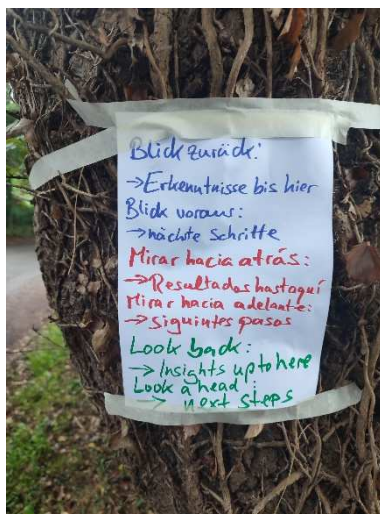 Blick zurück:
→Erkenntnisse bis hier
Blick voraus:
→nächste Schritte
Mirar hacia atrás:
→Resultados hasta aquí
Mirar hacia adelante:
→siguintes pasos
Look back:
→Insights up to here
Look ahead:
→ next steps